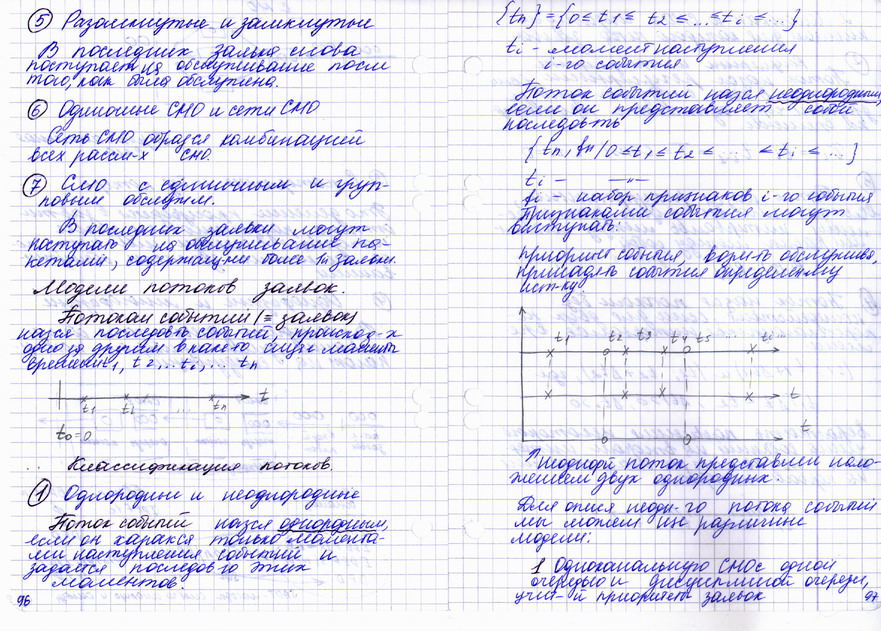 ⑤ Разомкнутые и замкнутые
В последних заявка снова
поступает на обслуживание после
того, как была обслужена.
⑥ Одиночные СМО и сети СМО
Сеть СМО образся комбинацией
всех рассм-х СМО.
⑦ СМО с единичным и груп-
повым обслуж.
В последних заявки могут
поступать на обслуживание па-
кетами, содержащими более 1й заявки.
Модели потоков заявок.
Потоком событий (≡ заявок)
назся последовть событий, происход-х
одно за другим в какие-то моменты
времени t1, t2,...ti,... tn
t1 ti ... tn t
t0=0
Классификация потоков
① Однородные и неоднородные
Поток событий назся однородным,
если он характся только момента-
ми наступления событий и
задаётся последов-ю этих
моментов
96
{tn} = {0≤t1≤ t2 ≤...≤ti ≤...}
ti - момент наступления
i-го события
Поток событий назся неоднородным,
если он представляет собой
последовть
{tn, fn / 0≤t1≤t2≤ ... ≤ti≤...}
ti — —"—
fi — набор признаков i-го события
Признаками события могут
выступать:
приоритет события, обслужив,
принадлть события определенному
ист-ку
t1 t2 t3 t4 t5 ti...
t
t
Неоднород поток представлен нало-
жением двух однородных.
Для опися неодн-го потока событий
мы можем различные
модели:
1 Одноканальную СМО с одной
очередью и дисциплиной очереди,
учит-й приоритеты заявок
97